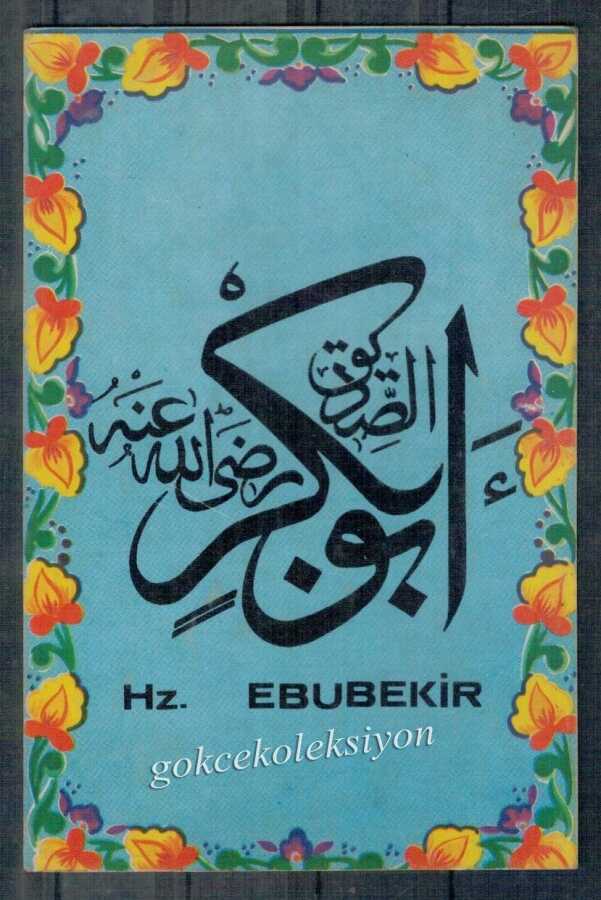 أبو بكرٍ
الصِّديق
رضى الله عنه
Hz. EBUBEKİR
gokcekoleksiyon